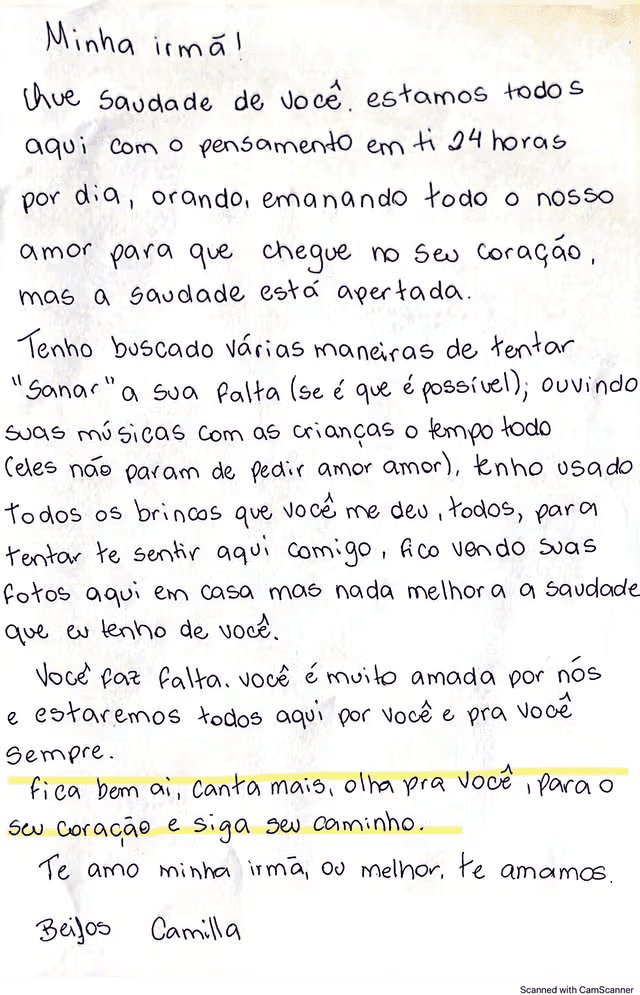 Minha irmã!
Que saudade de você. estamos todos
aqui com o pensamento em ti 24 horas
por dia, orando, emanando todo o nosso
amor para que chegue no seu coração,
mas a saudade está apertada.
Tenho buscado várias maneiras de tentar
"sanar" a sua falta (se é que é possível); ouvindo
suas músicas com as crianças o tempo todo
(eles não param de pedir amor amor), tenho usado
todos os brincos que você me deu, todos, para
tentar te sentir aqui comigo, fico vendo suas
fotos aqui em casa mas nada melhora a saudade
que eu tenho de você.
Você faz falta. você é muito amada por nós
e estaremos todos aqui por você e pra você
sempre.
fica bem ai, canta mais, olha pra você, para o
seu coração e siga seu caminho.
Te amo minha irmã, ou melhor, te amamos.
Beijos Camilla
Scanned with CamScanner